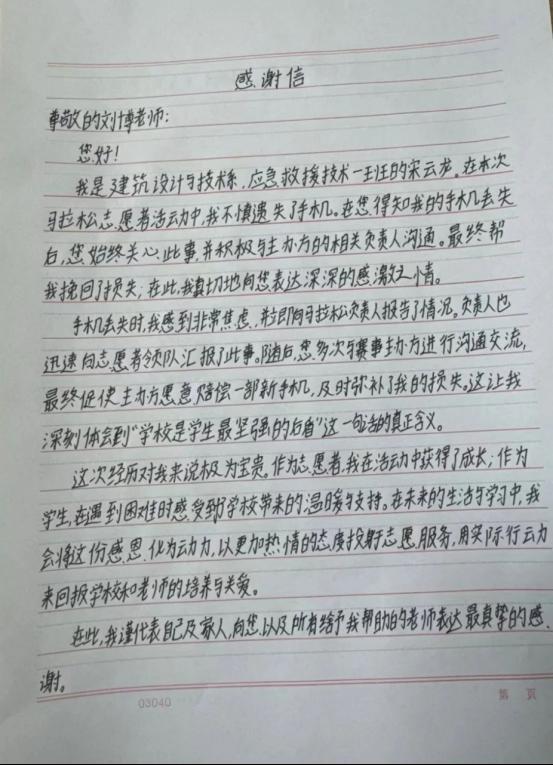 感谢信
尊敬的刘博老师:
您好!
我是建筑设计与技术系,应急救援技术一班的宋云龙。在本次
马拉松志愿者活动中,我不慎遗失了手机。在您得知我的手机丢失
后,您始终关心此事,并积极与主办方的相关负责人沟通。最终帮
我挽回了损失;在此,我真切地向您表达深深的感激之情。
手机丢失时,我感到非常焦虑,并立即向马拉松负责人报告了情况。负责人也
迅速向志愿者领队汇报了此事。随后,您多次与赛事主办方进行沟通交流,
最终促使主办方愿意赔偿一部新手机,及时弥补了我的损失。这让我
深刻体会到“学校是学生最坚强的后盾”这一句话的真正含义。
这次经历对我来说极为宝贵。作为志愿者,我在活动中获得了成长;作为
学生,在遇到困难时感受到学校带来的温暖与支持。在未来的生活与学习中,我
会将这份感恩化为动力,以更加热情的态度投身于志愿服务,用实际行动
来回报学校和老师的培养与关爱。
在此,我谨代表自己及家人,向您以及所有给予我帮助的老师表达最真挚的感
谢。
03040
第 页